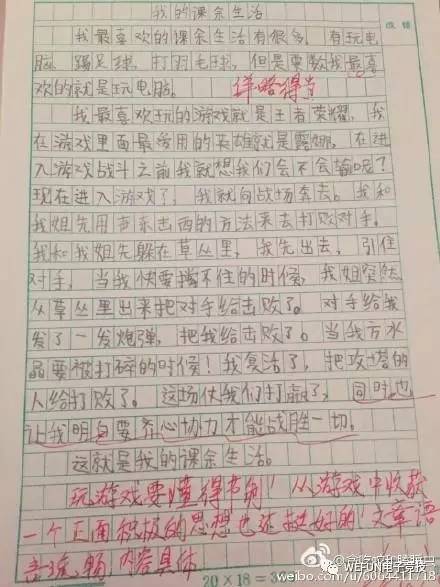 我的课余生活
我最喜欢的课余生活有很多，有玩电
脑、踢足球、打羽毛球，但是要数我最喜
欢的就是玩电脑。 详略得当
我最喜欢玩的游戏就是王者荣耀，我
在游戏里面最爱用的英雄就是露娜，在进
入游戏战斗之前我就想我们会不会输呢？
现在进入游戏了，我就向战场奔去。我和
我姐先用声东击西的方法来去打败对手。
我和我姐先躲在草丛里，我先出去，引住
对手，当我快要挡不住的时候，我姐突然
从草丛里出来把对手给击败了。对手给我
发了一发炮弹，把我给击败了。当我方水
晶要被打碎的时候！我复活了，把攻塔的
人给打败了。这场仗我们打赢了，同时也
让我明白要齐心协力才能战胜一切。
这就是我的课余生活。
玩游戏要懂得节制！从游戏中收获
一个正面积极的思想也还挺好的！文章语
言流畅，内容具体
20×18=3
weibo.com/